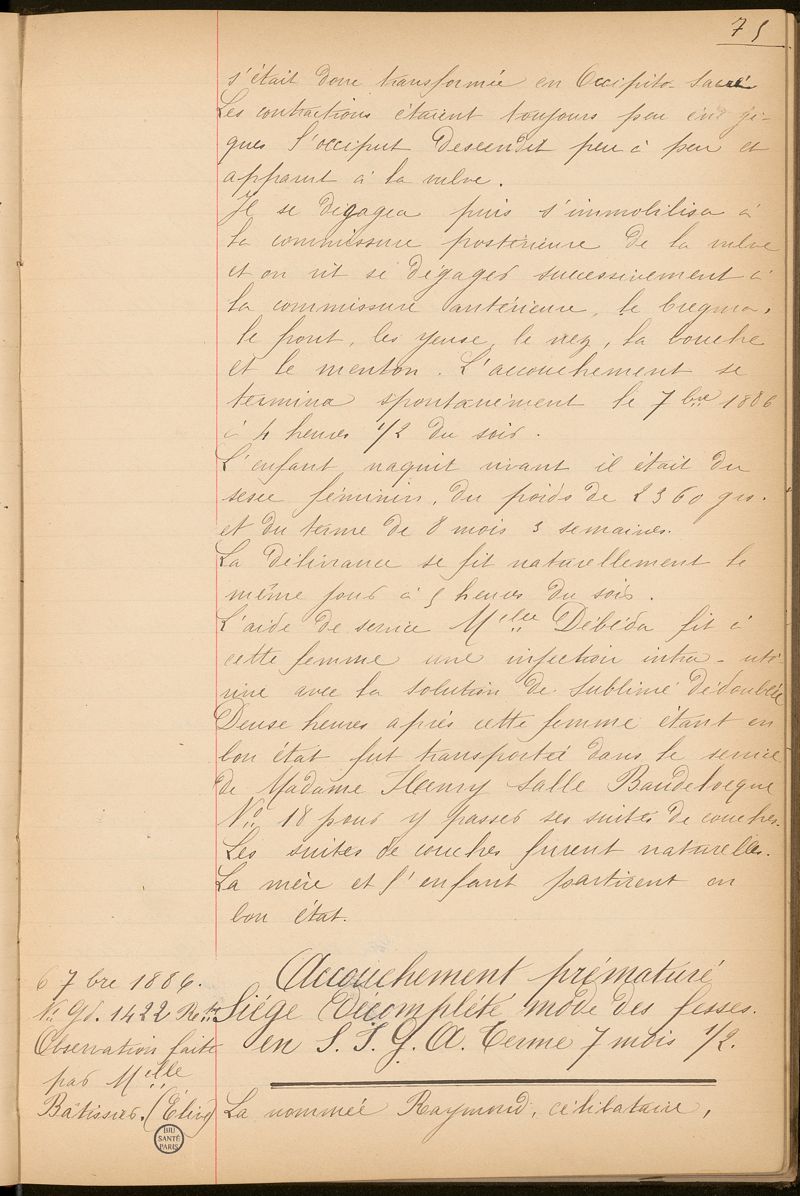 75
s'était donc transformée en Occipito-Sacrée
Les contractions étaient toujours peu énergi-
ques l'occiput descendit peu à peu et
apparut à la vulve.
Il se dégagea puis s'immobilisa à
la commissure postérieure de la vulve
et on vit se dégager successivement à
la commissure antérieure, le bregma,
le front, les yeuse, le nez, la bouche
et le menton. L'accouchement se
termina spontanément le 7bre 1886
à 4 heures 1/2 du soir.
L'enfant naquit vivant il était du
sexe féminin, du poids de 2360 grs.
et du terme de 8 mois 3 semaines.
La délivrance se fit naturellement le
même jour à 5 heures du soir.
L'aide de service Melle Débéda fit à
cette femme une injection intra-uté
rine avec la solution de sublimé dédoublée
Deuse heures après cette femme étant en
bon état fut transportée dans le service
de Madame Henry Salle Baudelocque
No 18 pour y passer ses suites de couches.
Les suites de couches furent naturelles.
La mère et l'enfant partirent en
bon état.
6 7bre 1886.
No Gd. 1422
Observation faite
par Melle
Bâtissier. (Élève)
Accouchement prématuré
Siége Décomplété mode des fesses.
en S.I.G.A. Terme 7 mois 1/2.
La nommée Raymond, célibataire,
BIU
SANTÉ
PARIS